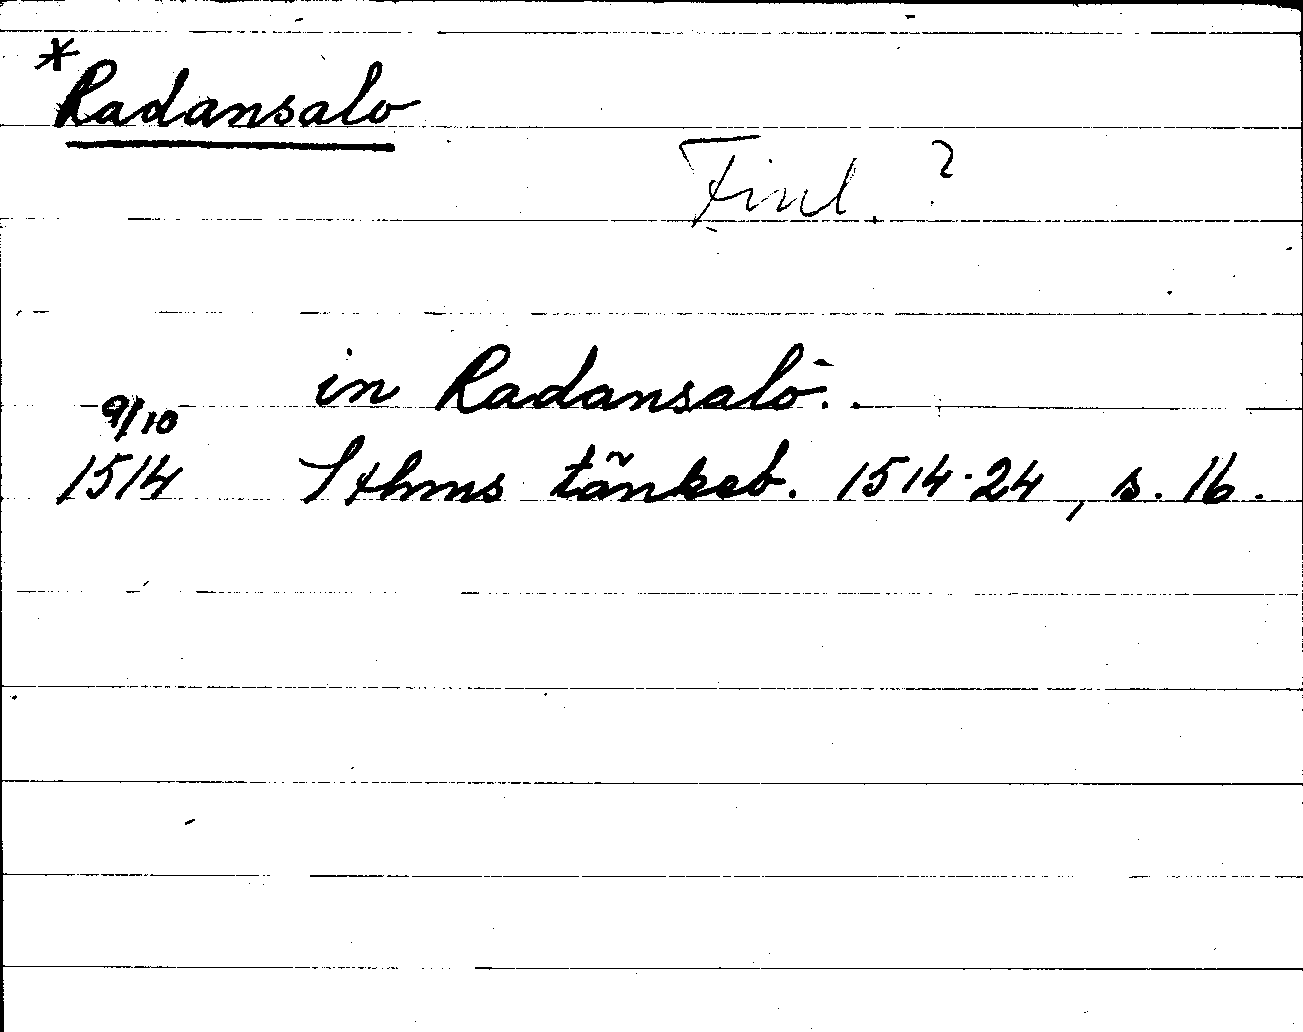 *Radansalo
Finl. ?
in Radansalo..
9/10
1514 Sthms tänkeb. 1514-24, s. 16.